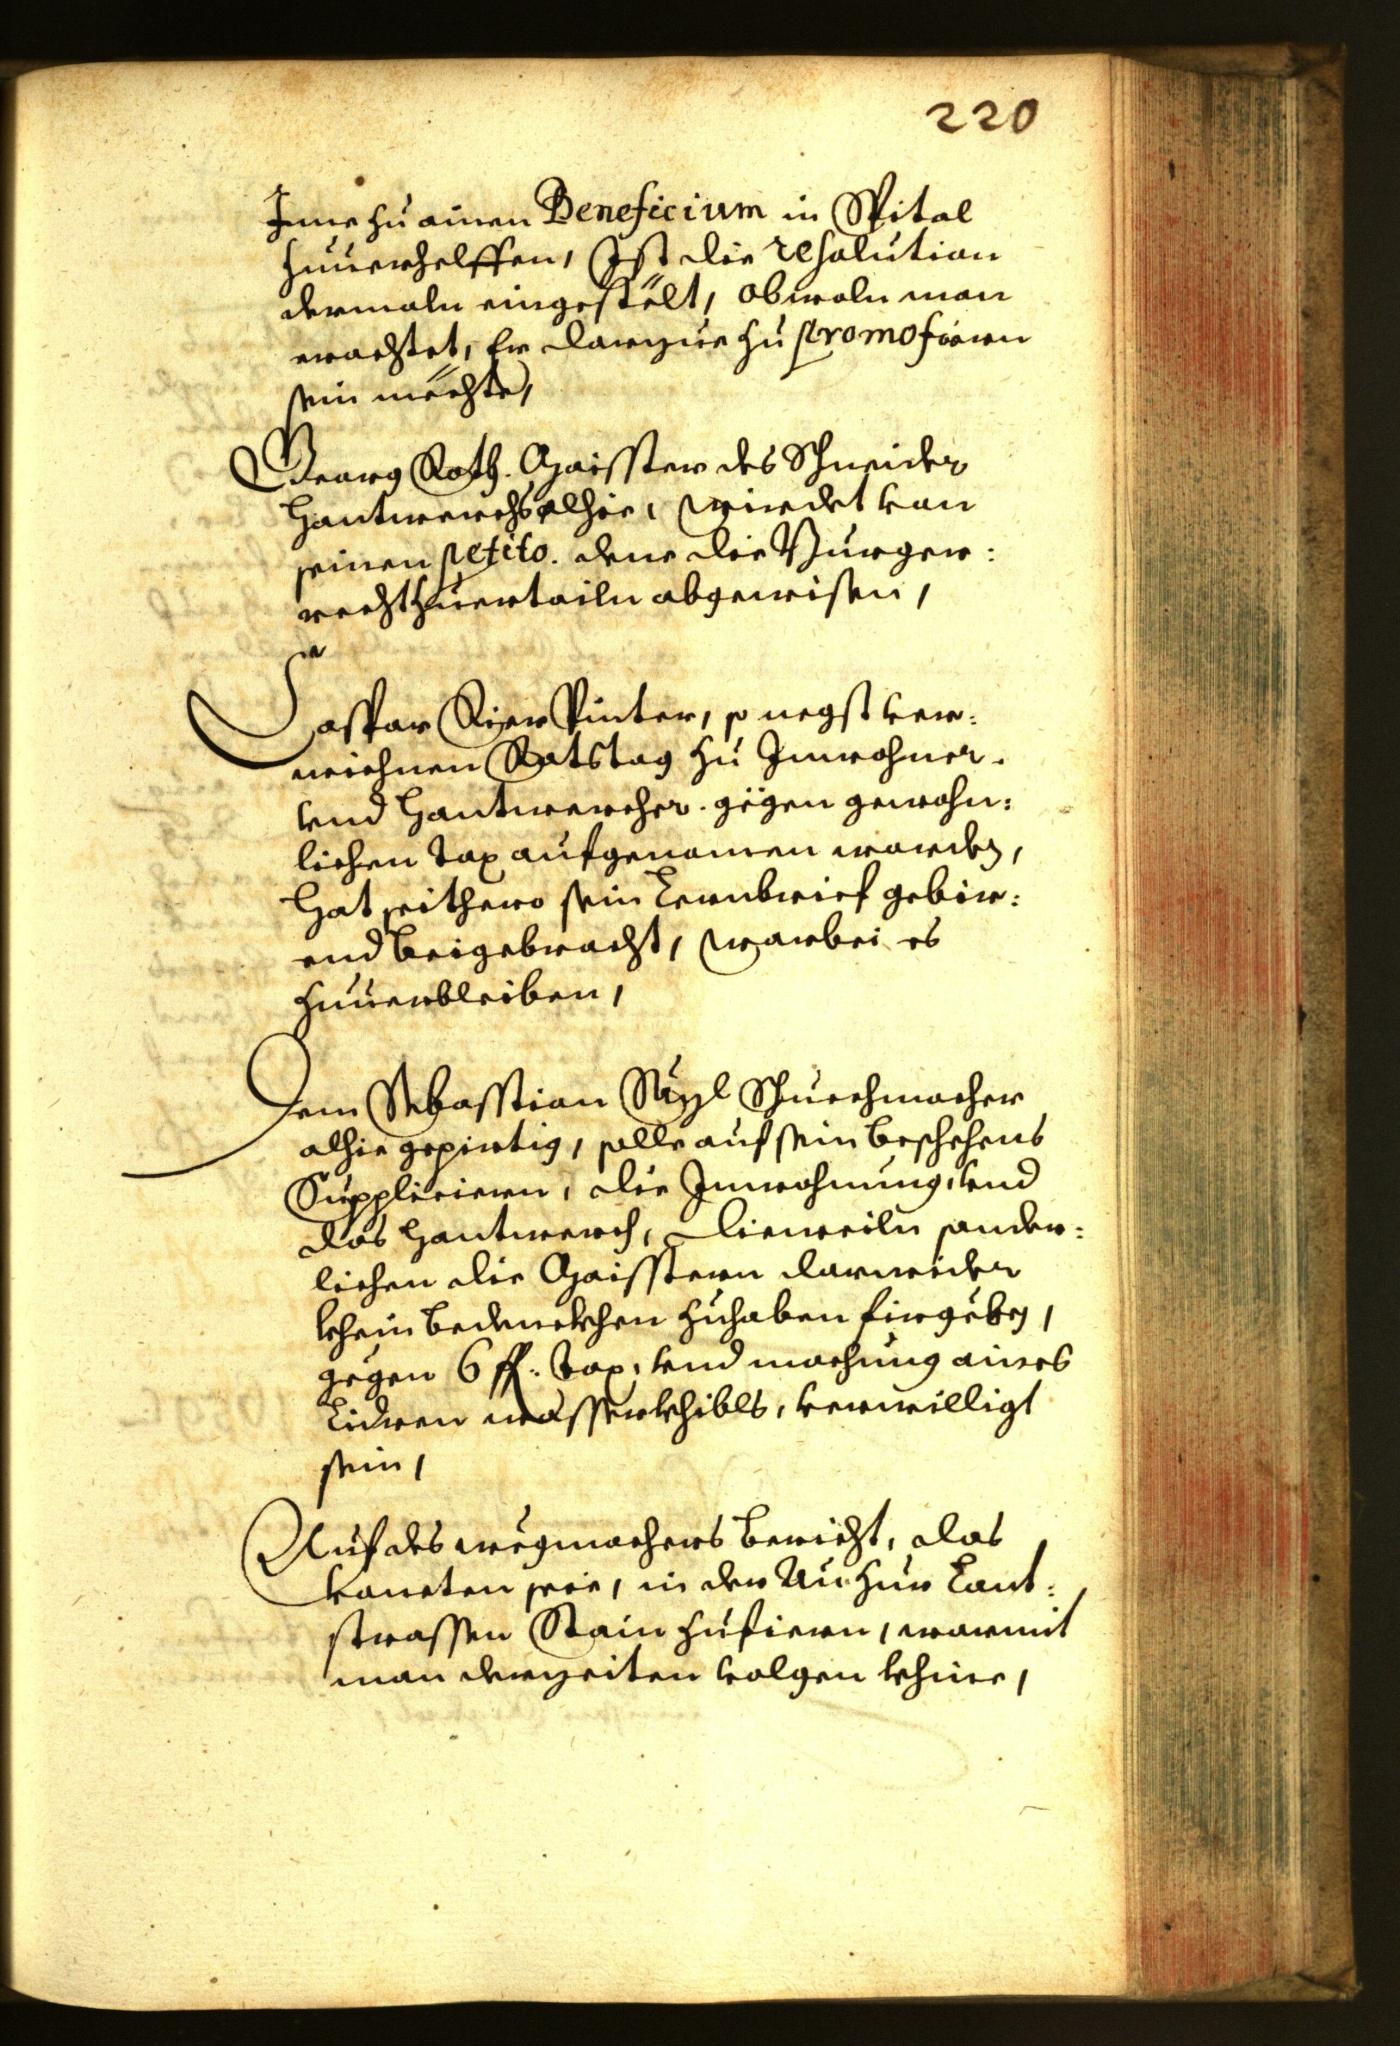 220
Ime zu ainen Beneficium in Spital
zuuerhelffen, Ist die resolution
dermaln eingestelt, obwoln man
erachtet, Er darzue zu promofiern
sein mechte,
Georg Roth. Maisster des Schneider
Hantwerchs alhie, wirdet von
seinen petito. dene die Burger:
recht zuertailn abgewisen,
Caspar Rier Pinter, so negst ver:
wichnen Ratstag zu Inwohner.
vnd Hantwercher. gegen gewohn:
lichen Tax aufgenomen worden,
Hat seithero sein Lernbrief gebir:
end beigebracht, warbei es
zuuerbleiben,
Dem Sebasstian Schuechmacher
alhie gepirtig, solle auf sein beschehens
Suppliciern, die Inwohnung, vnd
das Hantwerch, dieweiln sonder:
lichen die Maisstern darwider
khein bedenckhen zuhaben firgeben,
gegen 6 fl: Tax, vnd machung aines
Lidren wasserkhibls, verwilligt
sein,
Auf des wegmachers bericht, das
voneten seie, in der Au zur Lant:
strassen Stain zufiern, warmit
man derzeiten volgen khine,